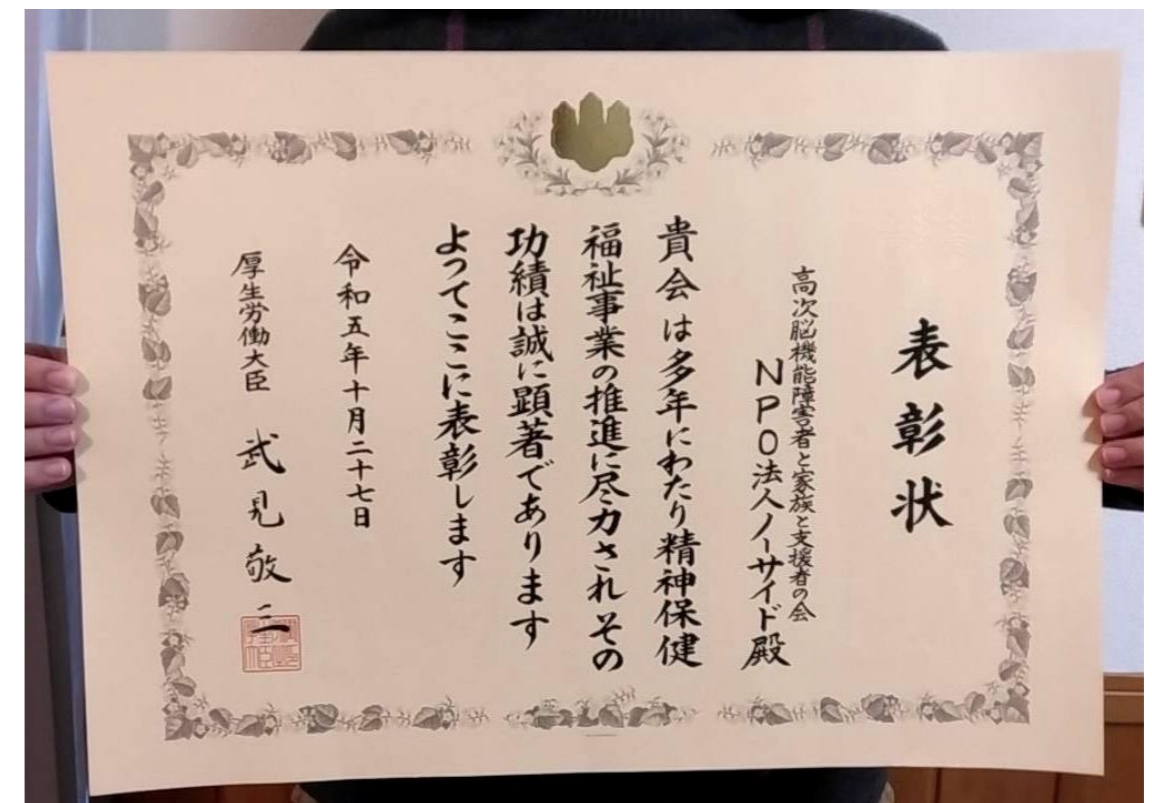 表彰状
高次脳機能障害者と家族と支援者の会
NPO法人ノーサイド殿
貴会は多年にわたり精神保健
福祉事業の推進に尽力されその
功績は誠に顕著であります
よってここに表彰します
令和五年十月二十七日
厚生労働大臣 武見敬三